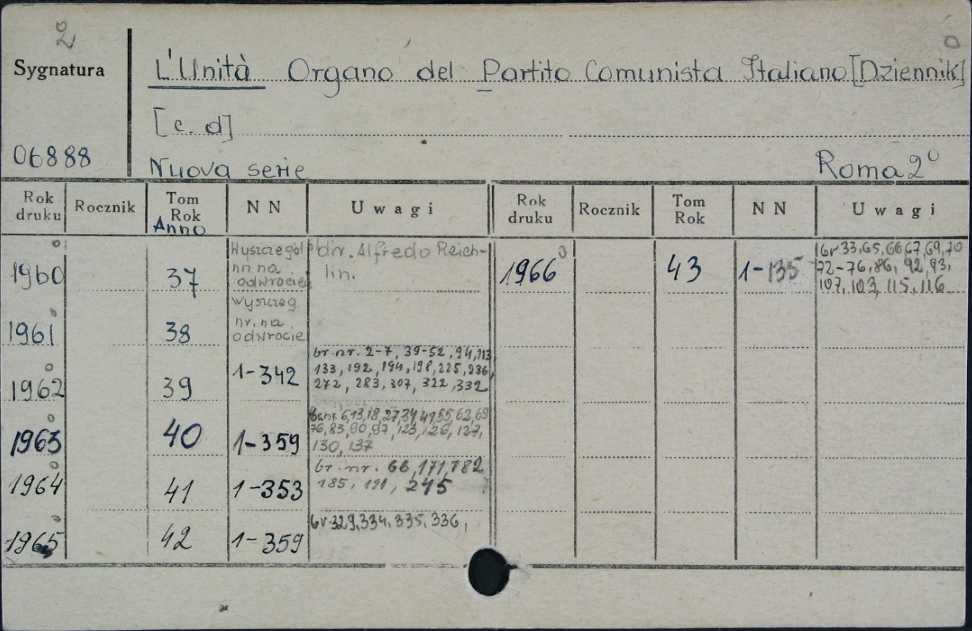 2
Sygnatura
L'Unità Organo del Partito Comunista Italiano [Dziennik]
[c. d]
06888
Nuova serie
Roma 2°
Rok druku Rocznik Tom Rok Anno NN Uwagi Rok druku Rocznik Tom Rok NN Uwagi
1960 37 Wyszczegól nr. na odwrocie dir. Alfredo Reich-
lin.
1966 43 1-135 br 33, 65, 66 67, 69, 70
72-76, 86, 92, 93,
107, 103, 115, 116
1961 38 wyszczeg nr. na odwrocie
1962 39 1-342 br. nr. 2-7, 39-52, 94, 113
133, 192, 194, 198, 225, 236,
272, 283, 307, 322, 332
1963 40 1-359 6, 13, 18, 27, 34, 49, 55, 62, 69
76, 83, 90, 97, 123, 126, 127,
130, 137
1964 41 1-353 br. nr. 66, 171, 182
185, 191, 245
1965 42 1-359 br 329, 334, 335, 336,